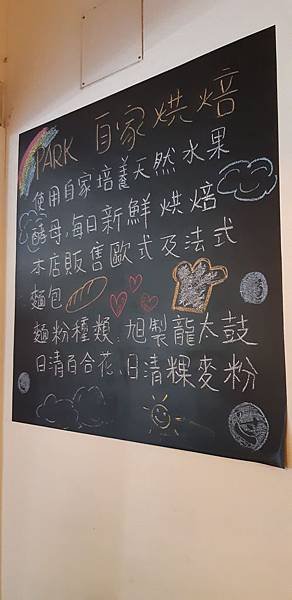 PARK 自家烘焙
使用自家培養天然水果
酵母,每日新鮮烘焙
本店販售歐式及法式
麵包
麵粉種類:旭製龍太鼓
日清百合花、日清粿麥粉